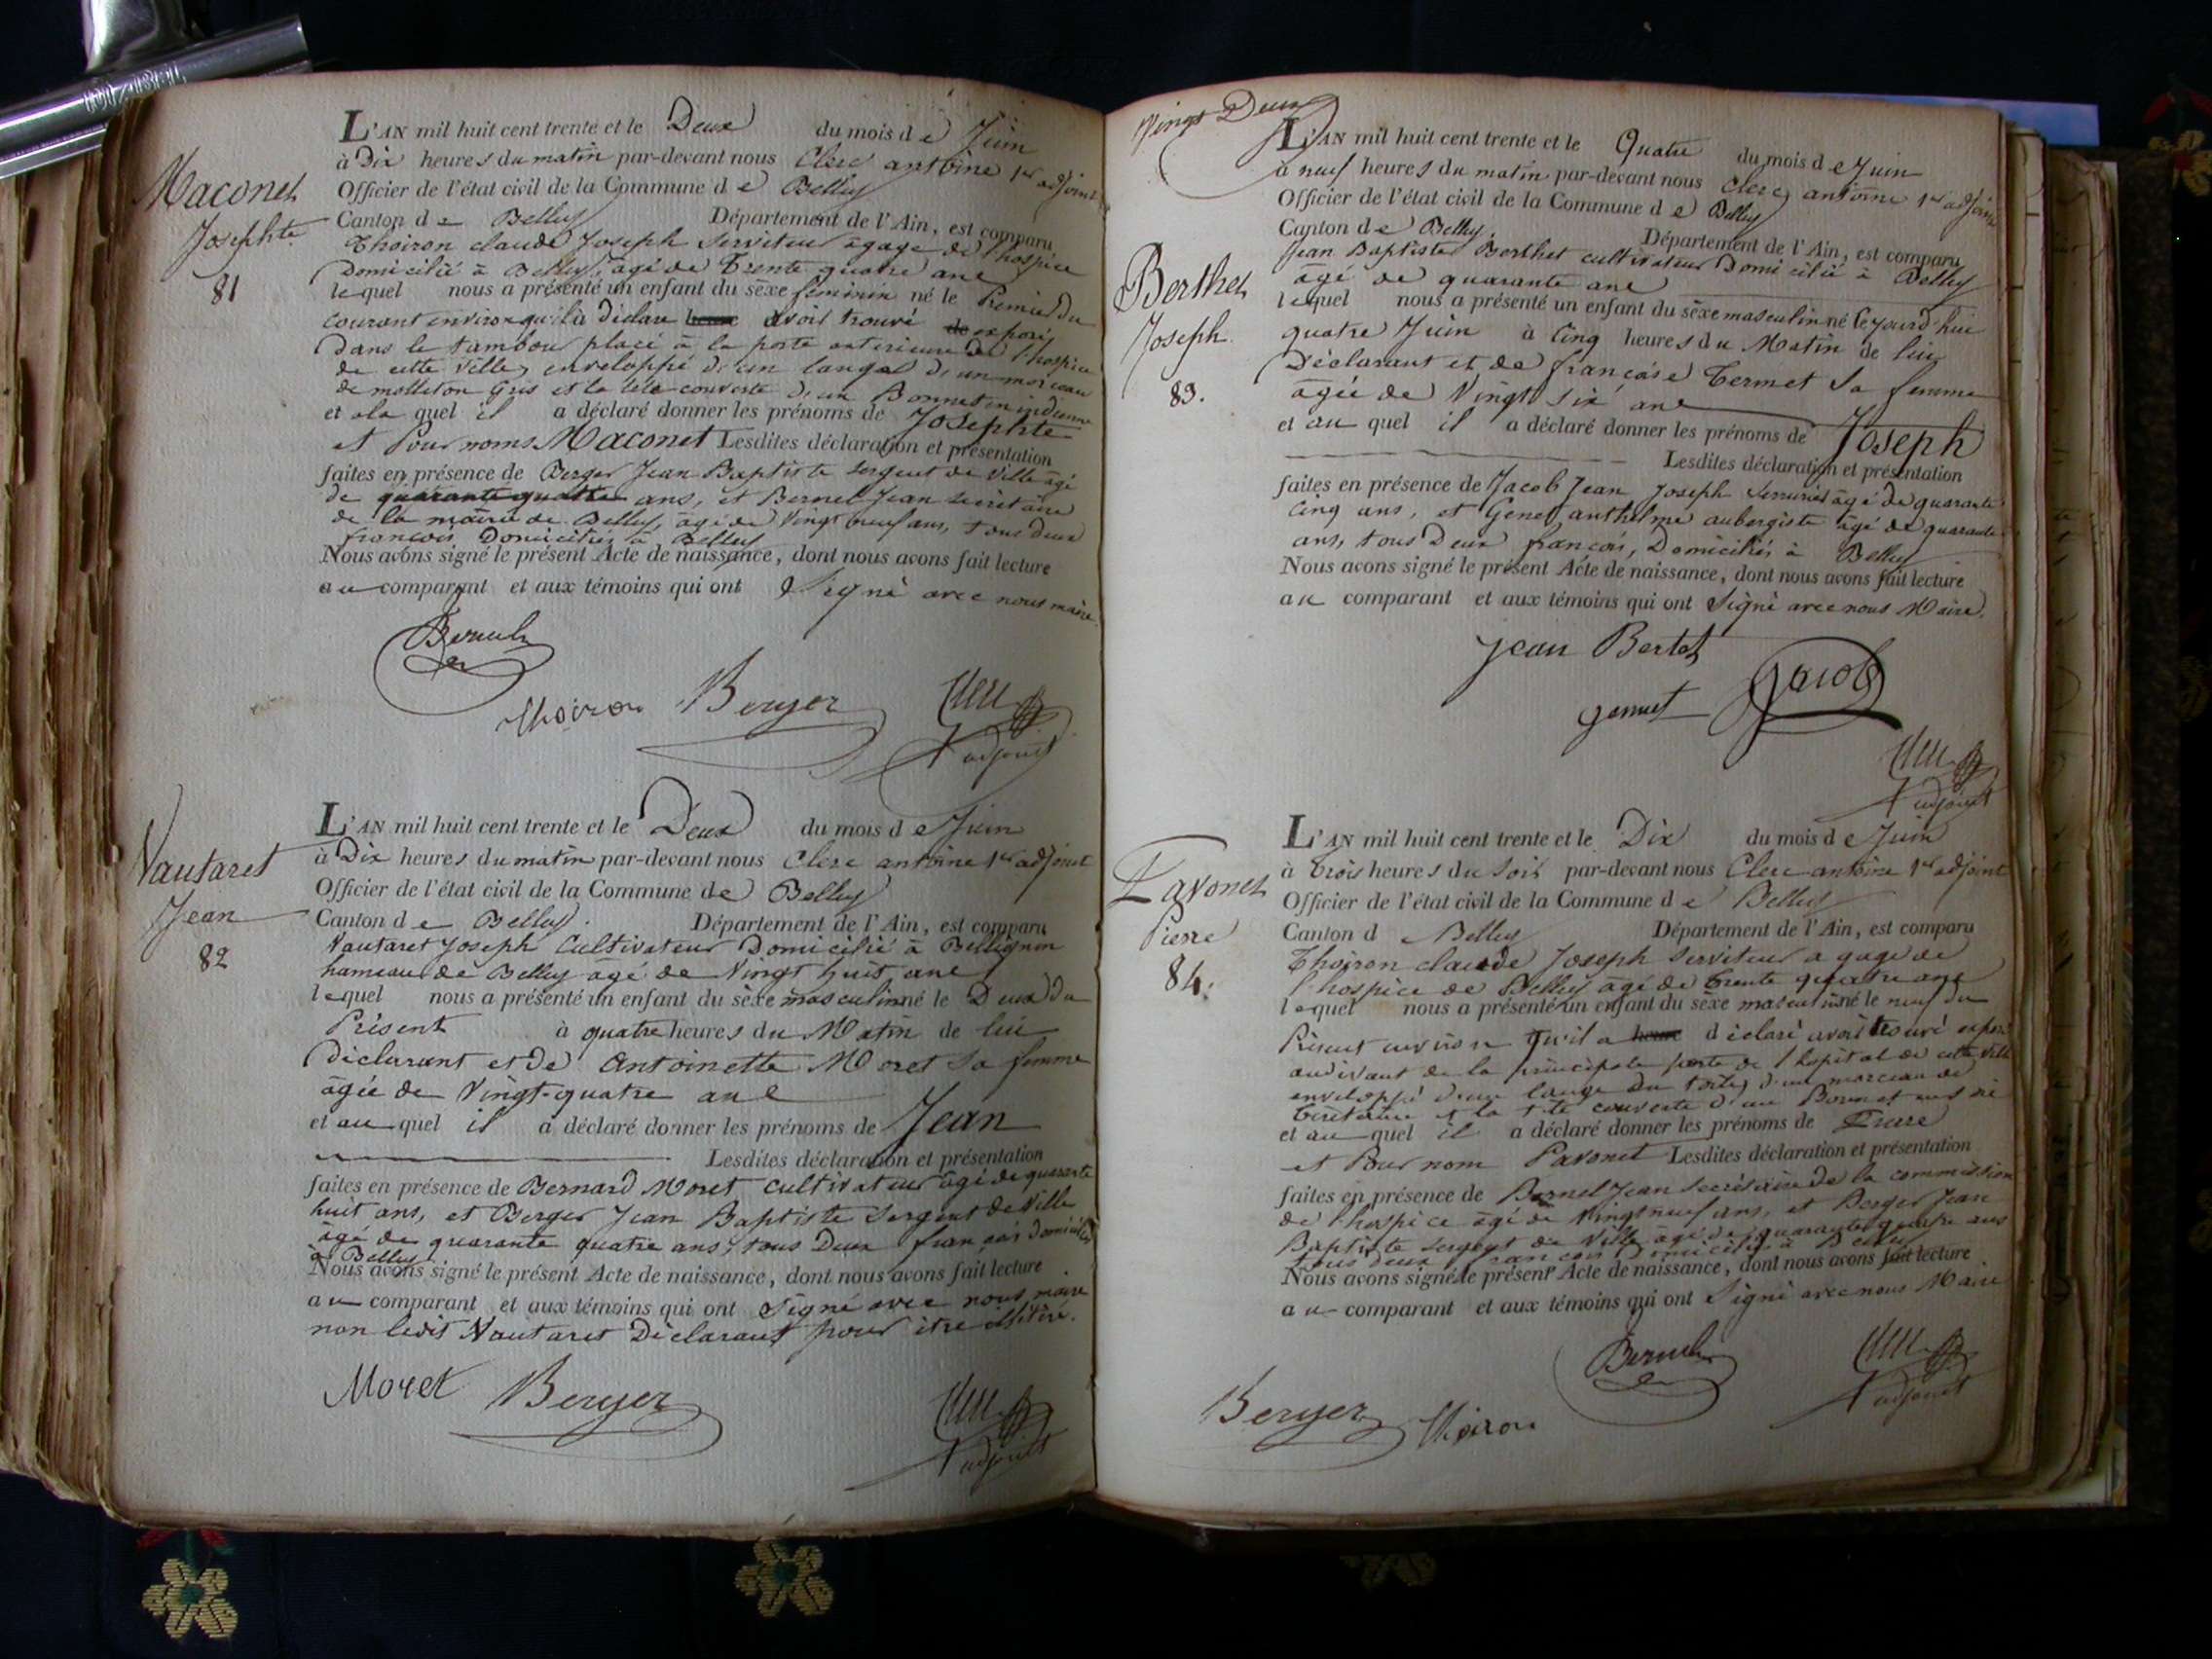 Maconet
Josephte
81
L'AN mil huit cent trente et le Deux du mois de Juin
à Dix heures du matin par-devant nous Clerc antoine 1er adjoint
Officier de l'état civil de la Commune de Belley
Canton de Belley Département de l'Ain, est comparu
Thoiron claude Joseph Serviteur agage de l'hospice
Domicilié à Belley, âgé de Trente quatre ans
lequel nous a présenté un enfant du sèxe féminin né le Premier du
courant environ qu'il à Déclaré avoir trouvé exposé
Dans le tambour placé à la porte exterieure De l'hospice
de cette ville, enveloppé d'un lange d'un morceau
de molleton Gris et la tête couverte d'un Bonnet en indienne
et ala quel il a déclaré donner les prénoms de Josephte
et Pour noms Maconet Lesdites déclaration et présentation
faites en présence de Berger Jean Baptiste sergent de Ville âgé
de quarante quatre ans, et Bernel Jean secrétaire
de la mairie de Belley, âgé de Vingt neuf ans, tous deux
françois Domiciliés à Belley
Nous avons signé le présent Acte de naissance, dont nous avons fait lecture
au comparant et aux témoins qui ont Signé avec nous maire.
Bernel
Thoiron Berger Clerc
1er adjoint
Vautaret
Jean
82
L'AN mil huit cent trente et le Deux du mois de Juin
à Dix heures du matin par-devant nous Clerc antoine 1er adjoint
Officier de l'état civil de la Commune de Belley
Canton de Belley. Département de l'Ain, est comparu
Vautaret Joseph Cultivateur Domicilié à Bellignin
hameau de Belley âgé de Vingt huit ans
lequel nous a présenté un enfant du sèxe masculin né le Deux du
Présent à quatre heures du Matin de lui
Déclarant et De Antoinette Moret Sa femme
âgée de Vingt-quatre ans
et au quel il a déclaré donner les prénoms de Jean
Lesdites déclaration et présentation
faites en présence de Bernard Moret Cultivateur âgé de quarante
huit ans, et Berger Jean Baptiste Sergent de Ville
âgé de quarante quatre ans, tous Deux françois Domiciliés
à Belley
Nous avons signé le présent Acte de naissance, dont nous avons fait lecture
au comparant et aux témoins qui ont Signé avec nous maire
non ledit Vautaret Déclarant pour être illitéré.
Moret Berger Clerc
1er adjoint
Vingt Deux
Berthet
Joseph
83.
L'AN mil huit cent trente et le Quatre du mois de Juin
à neuf heures du matin par-devant nous Clerc antoine 1er adjoint
Officier de l'état civil de la Commune de Belley
Canton de Belley. Département de l'Ain, est comparu
Jean Baptiste Berthet cultivateur Domicilié à Belley
âgé de quarante ans
lequel nous a présenté un enfant du sèxe masculin né cejourd'hui
quatre Juin à Cinq heures du Matin de lui
Déclarant et de françoise Termet Sa femme
âgée de Vingt Six ans
et au quel il a déclaré donner les prénoms de Joseph
Lesdites déclaration et présentation
faites en présence de Jacob Jean Joseph Serrurier âgé de quarante
Cinq ans, et Genet anthelme aubergiste âgé de quarante
ans, tous Deux françois, Domiciliés à Belley
Nous avons signé le présent Acte de naissance, dont nous avons fait lecture
au comparant et aux témoins qui ont Signé avec nous Maire.
Jean Bertet
Jacob
Clerc
1er adjoint
Pavonet
Pierre
84.
L'AN mil huit cent trente et le Dix du mois de Juin
à Trois heures du Soir par-devant nous Clerc antoine 1er adjoint
Officier de l'état civil de la Commune de Belley
Canton d Belley Département de l'Ain, est comparu
Thoiron claude Joseph Serviteur a gage de
l'hospice de Belley âgé de Trente quatre ans
lequel nous a présenté un enfant du sèxe masculin né le neuf du
Présent environ qu'il a déclaré avoir trouvé exposé
audevant de la principale porte de l'hopital de cette ville
enveloppé d'un lange de toile, d'un morceau de
et la tête couverte d'un Bonnet
et au quel il a déclaré donner les prénoms de Pierre
et Pour nom Pavonet Lesdites déclaration et présentation
faites en présence de Bernel Jean Secrétaire de la commission
de l'hospice âgé de Vingt neuf ans, et Berger Jean
Baptiste sergent de Ville âgé de quarante quatre ans
tous deux françois Domiciliés à Belley
Nous avons signé le présent Acte de naissance, dont nous avons fait lecture
au comparant et aux témoins qui ont Signé avec nous Maire
Bernel Clerc
1er adjoint
Berger Thoiron